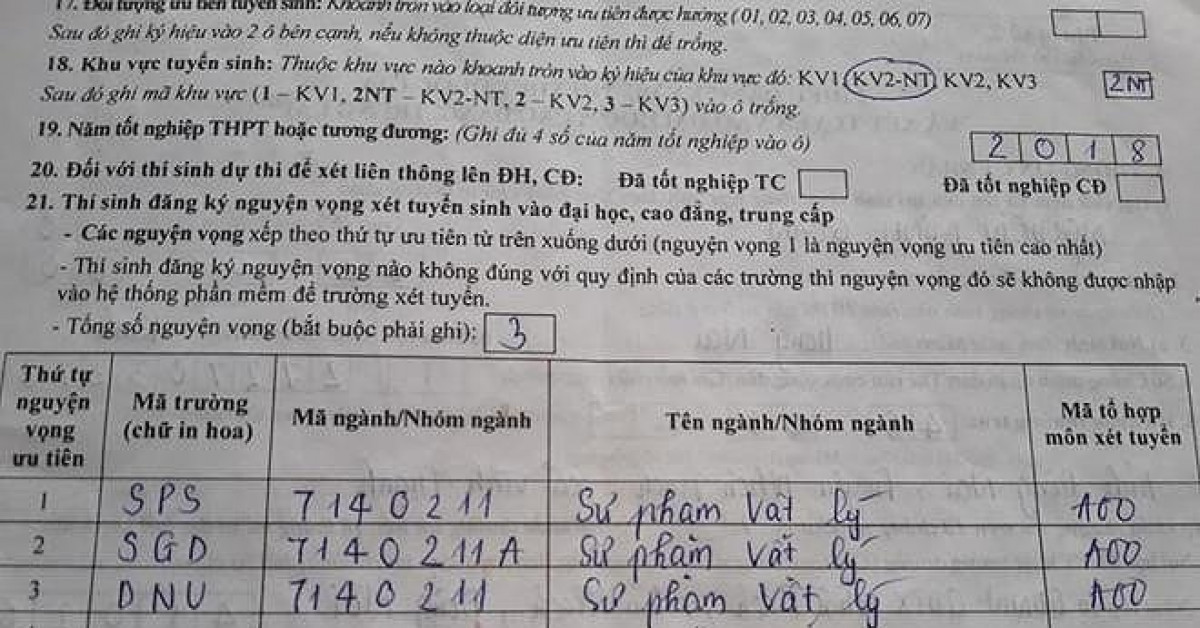 17. Đối tượng ưu tiên tuyển sinh: Khoanh tròn vào loại đối tượng ưu tiên được hưởng (01, 02, 03, 04, 05, 06, 07)
Sau đó ghi ký hiệu vào 2 ô bên cạnh, nếu không thuộc diện ưu tiên thì để trống.
18. Khu vực tuyển sinh: Thuộc khu vực nào khoanh tròn vào ký hiệu của khu vực đó: KV1, KV2-NT, KV2, KV3 2NT
Sau đó ghi mã khu vực (1 – KV1, 2NT – KV2-NT, 2 – KV2, 3 – KV3) vào ô trống.
19. Năm tốt nghiệp THPT hoặc tương đương: (Ghi đủ 4 số của năm tốt nghiệp vào ô) 2018
20. Đối với thí sinh dự thi để xét liên thông lên ĐH, CĐ: Đã tốt nghiệp TC Đã tốt nghiệp CĐ
21. Thí sinh đăng ký nguyện vọng xét tuyển sinh vào đại học, cao đẳng, trung cấp
- Các nguyện vọng xếp theo thứ tự ưu tiên từ trên xuống dưới (nguyện vọng 1 là nguyện vọng ưu tiên cao nhất)
- Thí sinh đăng ký nguyện vọng nào không đúng với quy định của các trường thì nguyện vọng đó sẽ không được nhập
vào hệ thống phần mềm để trường xét tuyển.
- Tổng số nguyện vọng (bắt buộc phải ghi): 3
Thứ tự
nguyện
vọng
ưu tiên
Mã trường
(chữ in hoa)
Mã ngành/Nhóm ngành
Tên ngành/Nhóm ngành
Mã tổ hợp
môn xét tuyển
1 SPS 7140211 Sư phạm Vật lý A00
2 SGD 7140211A Sư phạm Vật lý A00
3 DNU 7140211 Sư phạm Vật lý A00